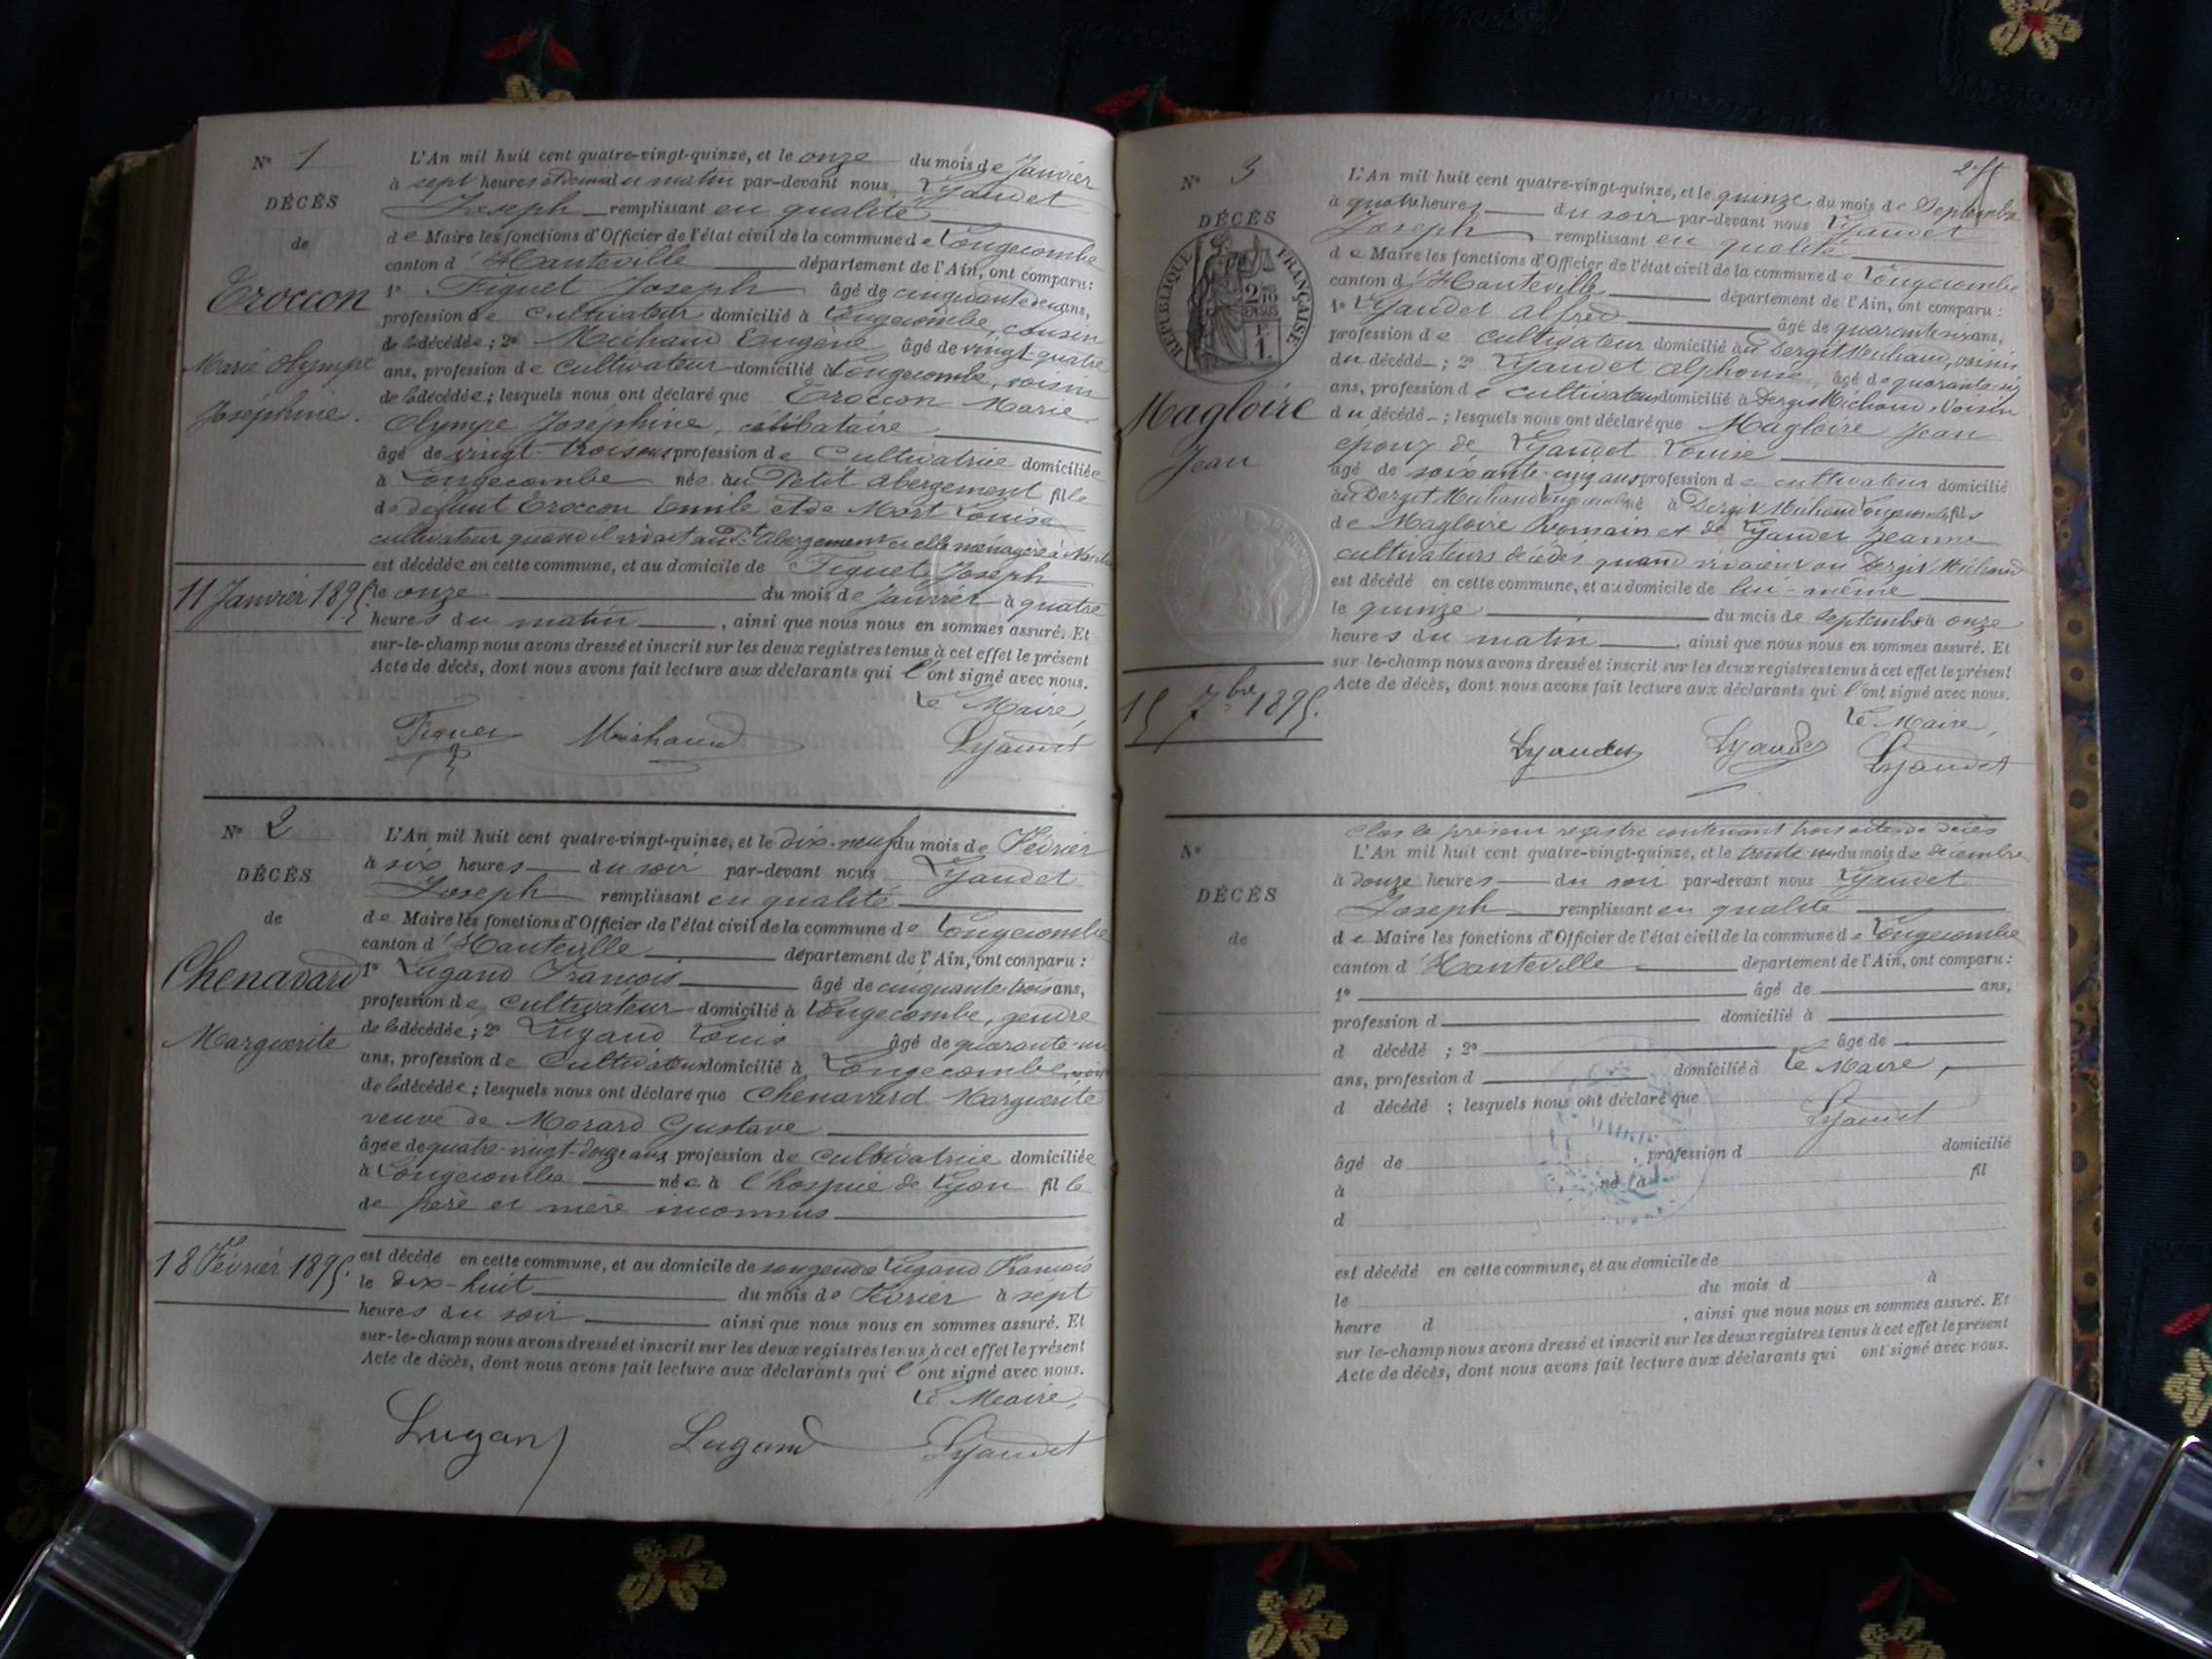 N° 1
DÉCÈS
de
Eroccon
Marie Olympe
Joséphine.
11 Janvier 1895.
L'An mil huit cent quatre-vingt-quinze, et le onze du mois de Janvier
à sept heures et demi du matin par-devant nous Lyaudet
Joseph remplissant en qualité
de Maire les fonctions d'Officier de l'état civil de la commune de Longecombe
canton d'Hauteville département de l'Ain, ont comparu :
1° Figuet Joseph âgé de cinquante deux ans,
profession de cultivateur domicilié à Longecombe, cousin
de la décédée ; 2° Michaud Eugène âgé de vingt quatre
ans, profession de cultivateur domicilié à Longecombe, voisin
de la décédée ; lesquels nous ont déclaré que Eroccon Marie
Olympe Joséphine, célibataire
âgé de vingt-trois ans profession de cultivatrice domiciliée
à Longecombe née au Petit Abergement fille
de défunt Eroccon Emile et de Mort Louise
cultivateur quand il vivait au Pt Abergement et elle ménagère à
est décédée en cette commune, et au domicile de Figuet Joseph
le onze du mois de Janvier à quatre
heures du matin, ainsi que nous nous en sommes assuré. Et
sur-le-champ nous avons dressé et inscrit sur les deux registres tenus à cet effet le présent
Acte de décès, dont nous avons fait lecture aux déclarants qui l'ont signé avec nous.
Le Maire,
Figuet Michaud Lyaudet
N° 2
DÉCÈS
de
Chenavard
Marguerite
18 Février 1895.
L'An mil huit cent quatre-vingt-quinze, et le dix-neuf du mois de Février
à six heures du soir par-devant nous Lyaudet
Joseph remplissant en qualité
de Maire les fonctions d'Officier de l'état civil de la commune de Longecombe
canton d'Hauteville département de l'Ain, ont comparu :
1° Lugand François âgé de cinquante trois ans,
profession de cultivateur domicilié à Longecombe, gendre
de la décédée ; 2° Lugand Louis âgé de quarante-un
ans, profession de cultivateur domicilié à Longecombe, voisin
de la décédée ; lesquels nous ont déclaré que Chenavard Marguerite
veuve de Morard Gustave
âgée de quatre-vingt-douze ans profession de cultivatrice domiciliée
à Longecombe née à l'hospice de Lyon fille
de père et mère inconnus
est décédé en cette commune, et au domicile de son gendre Lugand François
le dix-huit du mois de Février à sept
heures du soir ainsi que nous nous en sommes assuré. Et
sur-le-champ nous avons dressé et inscrit sur les deux registres tenus à cet effet le présent
Acte de décès, dont nous avons fait lecture aux déclarants qui l'ont signé avec nous.
Le Maire,
Lugand Lugand Lyaudet
N° 3
DÉCÈS
RÉPUBLIQUE FRANÇAISE
Magloire
Jean
15 7bre 1895.
L'An mil huit cent quatre-vingt-quinze, et le quinze du mois de Septembre
à quatre heures du soir par-devant nous Lyaudet
Joseph remplissant en qualité
de Maire les fonctions d'Officier de l'état civil de la commune de Longecombe
canton d'Hauteville département de l'Ain, ont comparu :
1° Lyaudet Alfred âgé de quarante six ans,
profession de cultivateur domicilié au Dergit Michaud, voisin
du décédé ; 2° Lyaudet Alphonse, âgé de quarante-six
ans, profession de cultivateur domicilié à Dergit Michaud, voisin
du décédé ; lesquels nous ont déclaré que Magloire Jean
époux de Lyaudet Louise
âgé de soixante-cinq ans profession de cultivateur domicilié
au Dergit Michaud Longecombe né à Dergit Michaud Longecombe, fils
de Magloire Romain et de Lyaudet Jeanne
cultivateurs décédés quand vivaient au Dergit Michaud
est décédé en cette commune, et au domicile de lui-même
le quinze du mois de Septembre à onze
heures du matin, ainsi que nous nous en sommes assuré. Et
sur-le-champ nous avons dressé et inscrit sur les deux registres tenus à cet effet le présent
Acte de décès, dont nous avons fait lecture aux déclarants qui l'ont signé avec nous.
Le Maire,
Lyaudet Lyaudet Lyaudet
N°
DÉCÈS
de
Clos le présent registre contenant trois actes de décès
L'An mil huit cent quatre-vingt-quinze, et le trente-un du mois de Décembre
à douze heures du soir par-devant nous Lyaudet
Joseph remplissant en qualité
de Maire les fonctions d'Officier de l'état civil de la commune de Longecombe
canton d'Hauteville département de l'Ain, ont comparu :
1° âgé de ans,
profession d domicilié à
d décédé ; 2° âgé de
ans, profession d domicilié à Le Maire,
d décédé ; lesquels nous ont déclaré que
Lyaudet
âgé de , profession d domicilié
à né à fil
d
est décédé en cette commune, et au domicile de
le du mois d à
heure d , ainsi que nous nous en sommes assuré. Et
sur-le-champ nous avons dressé et inscrit sur les deux registres tenus à cet effet le présent
Acte de décès, dont nous avons fait lecture aux déclarants qui ont signé avec nous.